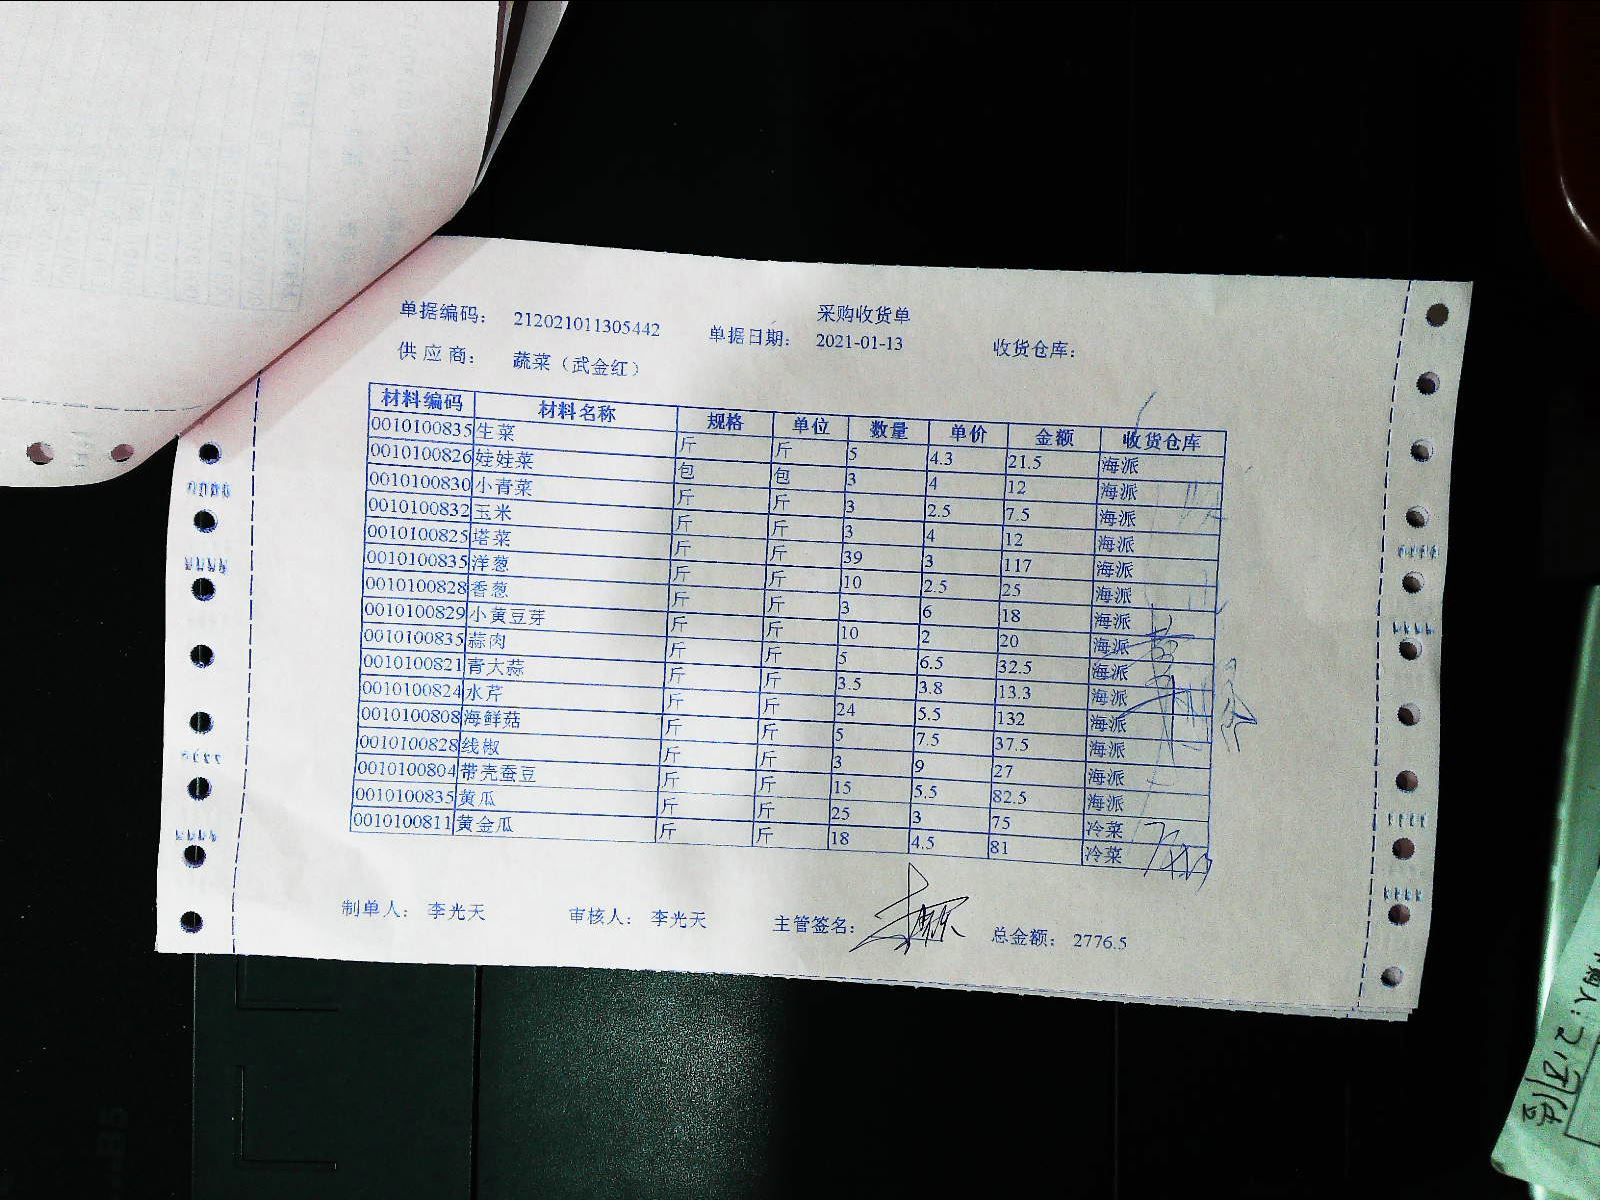 采购收货单
单据编码： 212021011305442 单据日期： 2021-01-13 收货仓库：
供 应 商： 蔬菜（武金红）
材料编码 材料名称 规格 单位 数量 单价 金额 收货仓库
0010100835 生菜 斤 斤 5 4.3 21.5 海派
0010100826 娃娃菜 包 包 3 4 12 海派
0010100830 小青菜 斤 斤 3 2.5 7.5 海派
0010100832 玉米 斤 斤 3 4 12 海派
0010100825 塔菜 斤 斤 39 3 117 海派
0010100835 洋葱 斤 斤 10 2.5 25 海派
0010100828 香葱 斤 斤 3 6 18 海派
0010100829 小黄豆芽 斤 斤 10 2 20 海派
0010100835 蒜肉 斤 斤 5 6.5 32.5 海派
0010100821 青大蒜 斤 斤 3.5 3.8 13.3 海派
0010100824 水芹 斤 斤 24 5.5 132 海派
0010100808 海鲜菇 斤 斤 5 7.5 37.5 海派
0010100828 线椒 斤 斤 3 9 27 海派
0010100804 带壳蚕豆 斤 斤 15 5.5 82.5 海派
0010100835 黄瓜 斤 斤 25 3 75 冷菜
0010100811 黄金瓜 斤 斤 18 4.5 81 冷菜
制单人： 李光天 审核人： 李光天 主管签名： 总金额： 2776.5